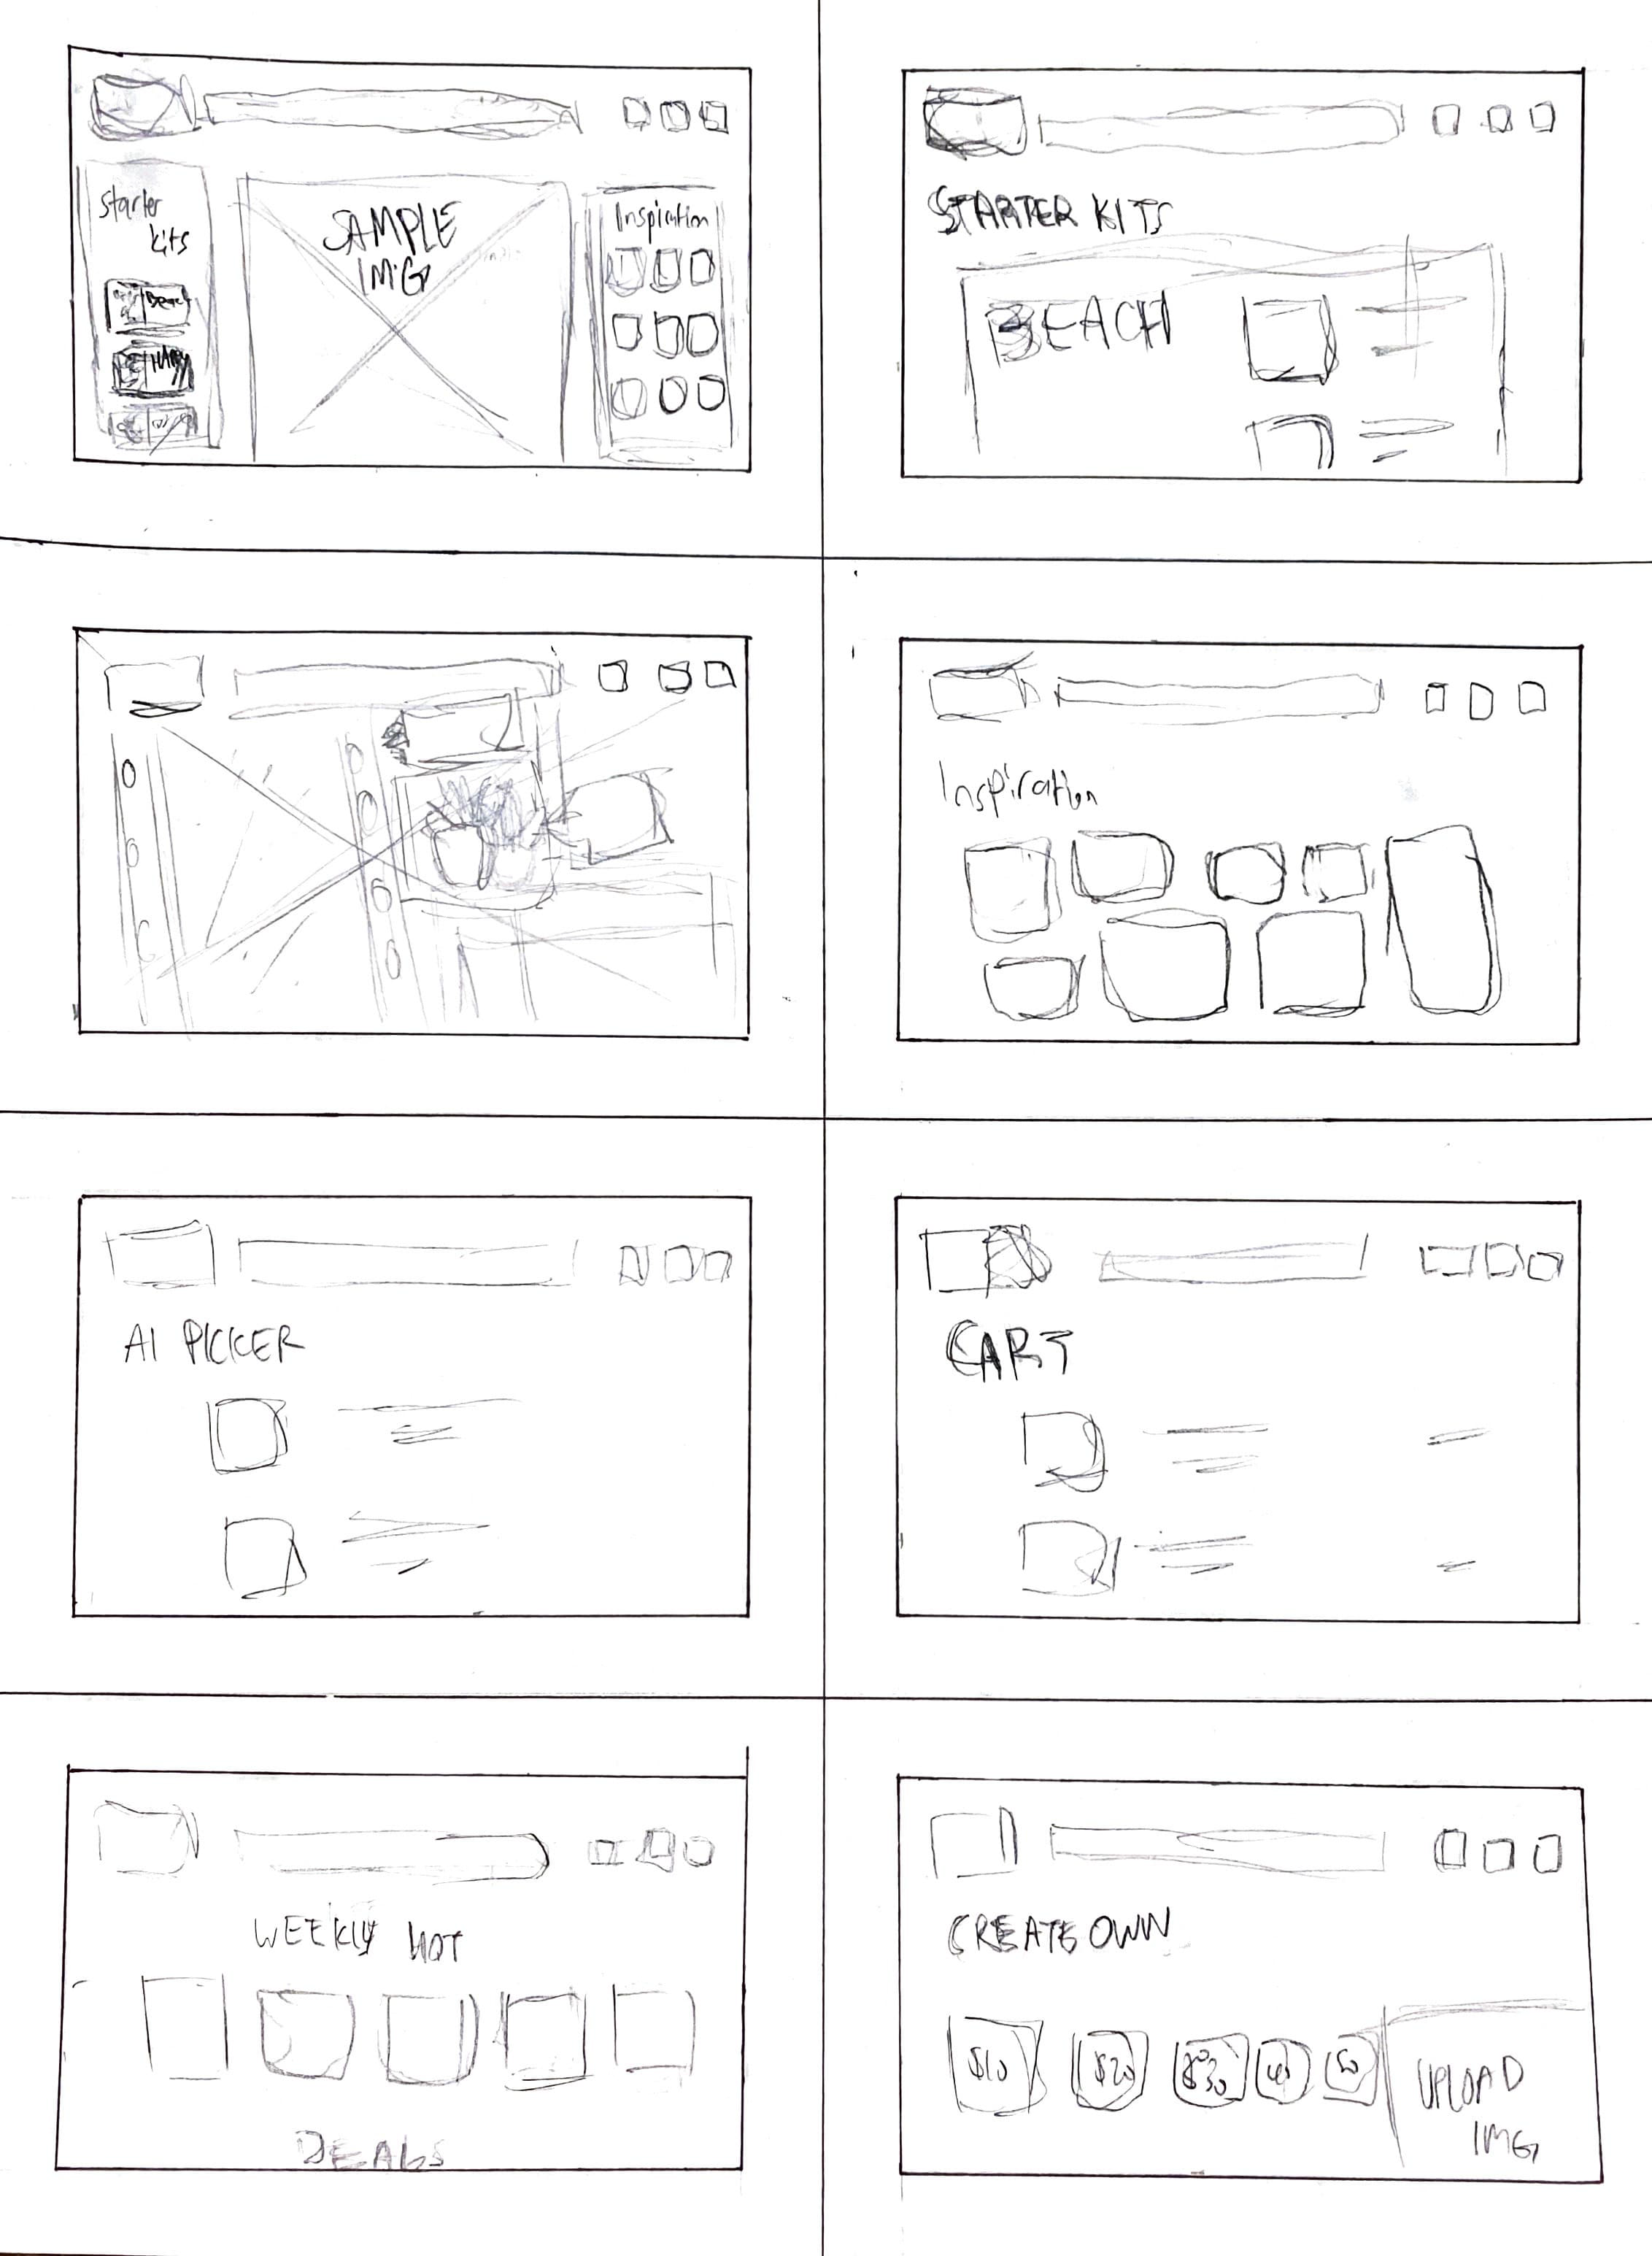 Starter
kits
Beach
HAPPY
SAMPLE
IMG
Inspiration
STARTER KITS
BEACH
Inspiration
AI PICKER
CART
WEEKLY HOT
DEALS
CREATE OWN
$10
$20
$30
40
50
UPLOAD
IMG